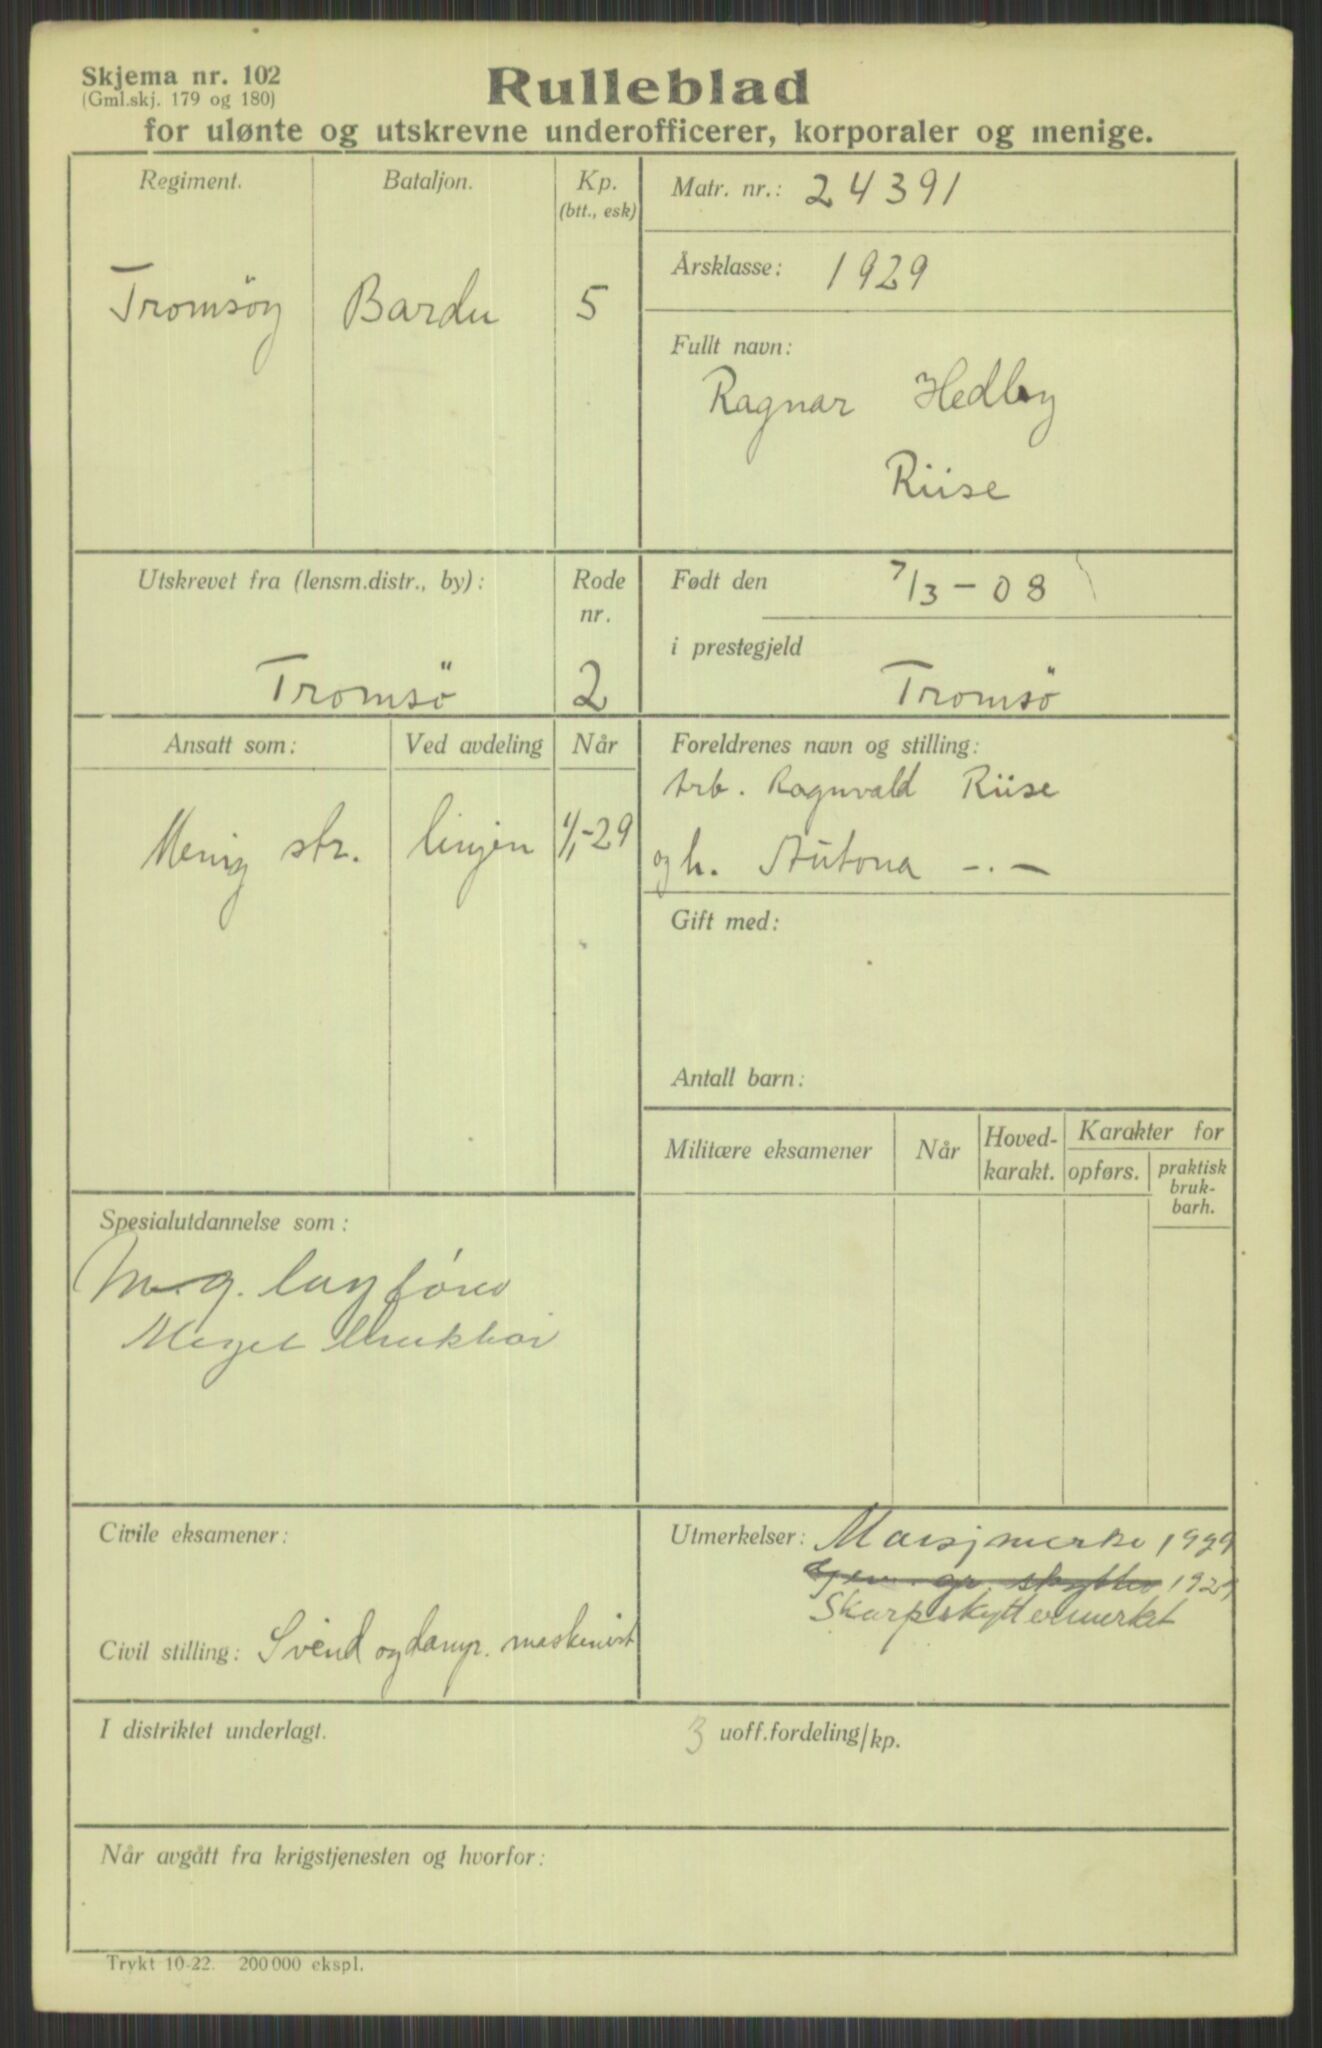 Skjema nr. 102
(Gml.skj. 179 og 180)
Rulleblad
for ulønte og utskrevne underofficerer, korporaler og menige.
Regiment.
Bataljon.
Kp.
(btt., esk)
Tromsöy
Bardu
5
Matr. nr.: 24391
Årsklasse: 1929
Fullt navn:
Ragnar Hedley
Riise
Utskrevet fra (lensm.distr., by):
Tromsö
Rode
nr.
2
Født den 7/3-08
i prestegjeld
Tromsö
Ansatt som:
Ved avdeling
Når
Menig str.
linjen
1/1-29
Foreldrenes navn og stilling:
Arb. Ragnvald Riise
og h. Antona -.-
Gift med:
Antall barn:
Militære eksamener
Når
Hoved-
karakt.
Karakter for
opførs.
praktisk
bruk-
barh.
Spesialutdannelse som:
M.g. lagfører
Meget brukbar
Civile eksamener:
Civil stilling: Svend og damp. maskinist
Utmerkelser: Marsjmerke 1929
gr. skytter 1929
Skarpskyttermerket
I distriktet underlagt.
3 uoff.fordeling/kp.
Når avgått fra krigstjenesten og hvorfor:
Trykt 10-22. 200 000 ekspl.